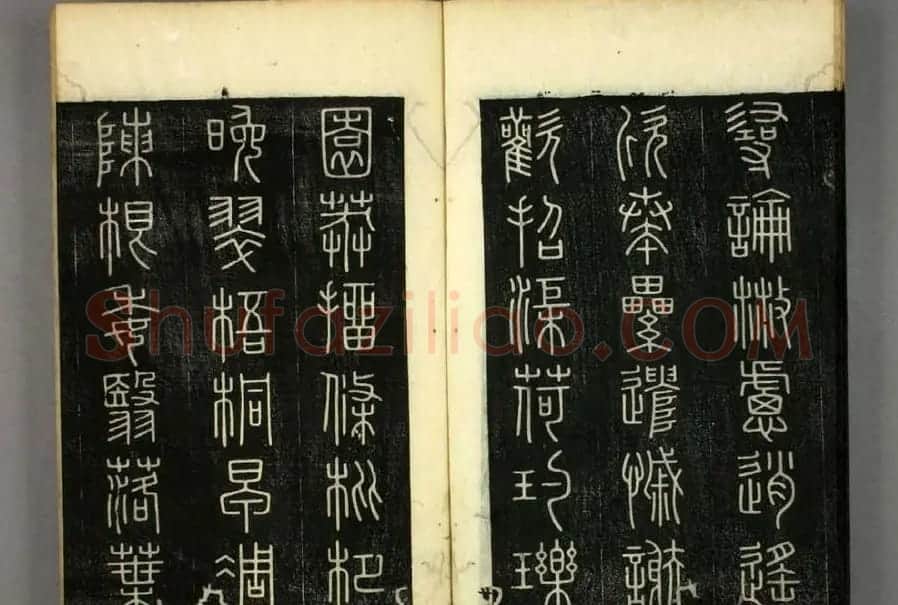 尋論散慮逍遙
欣奏累遣慼謝
歡招渠荷玓瓅
園莽抽條枇杷
晚翠梧桐早凋
陳根委翳落葉
Shufaziliao.COM